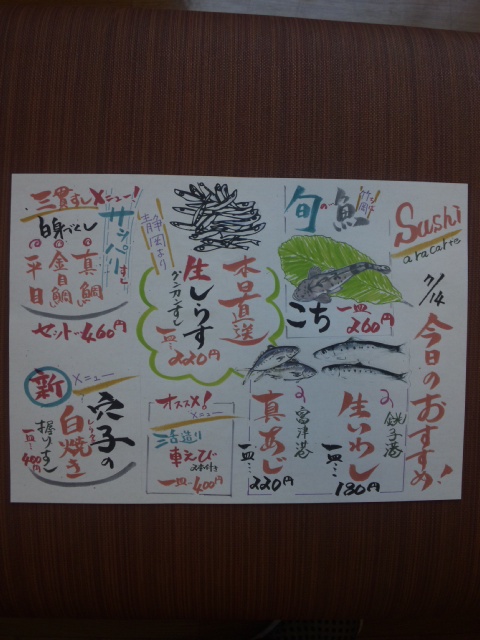 Sushi
a racarte
7/14
今日のおすすめ!
旬の魚
竹岡
こち
一皿
260円
銚子港
生いわし
一皿…
180円
富津港
真あじ
一皿…
220円
静岡より
本日直送
生しらす
グンカンずし
一皿…
220円
オススメ!
メニュー
三点造り
車えび
一皿…400円
三貫すしメニュー!
サッパリすし
白身づくし
真鯛
金目鯛
平目
セット…460円
新メニュー
穴子の
しらやき
白焼き
握りずし
一皿…
400円